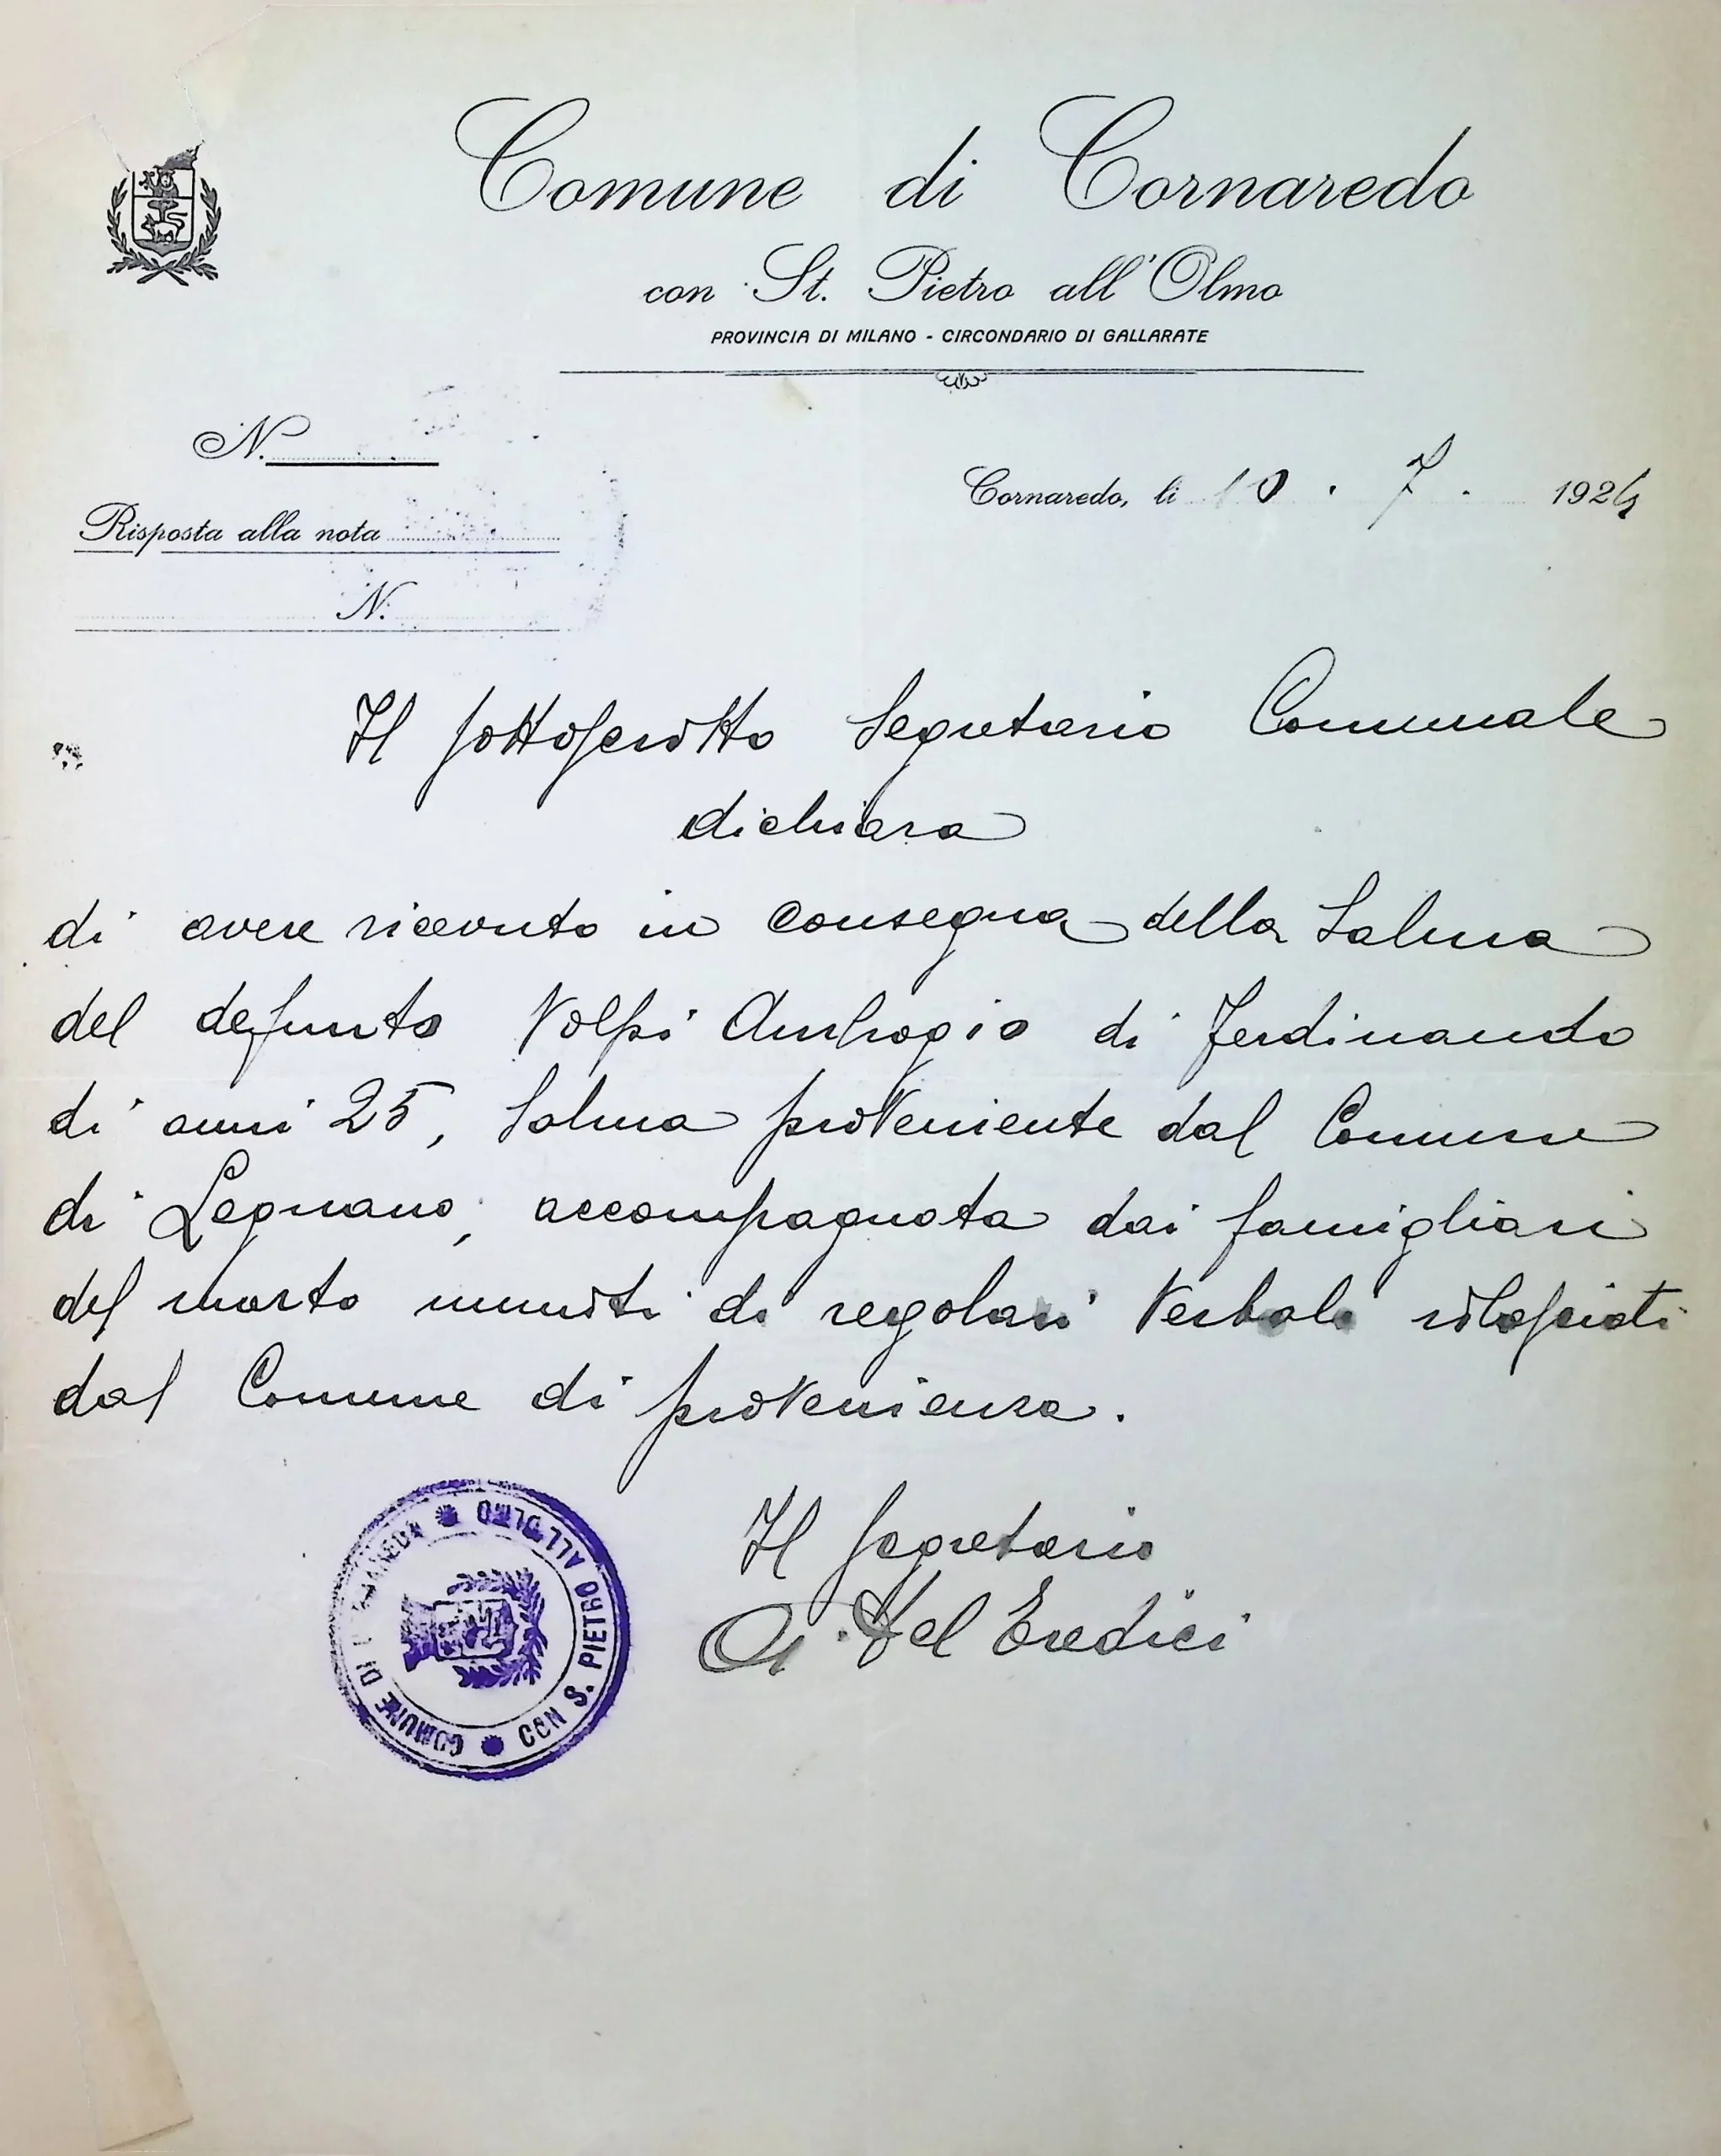 Comune di Cornaredo
con St. Pietro all'Olmo
PROVINCIA DI MILANO - CIRCONDARIO DI GALLARATE
N.
Cornaredo, li 10 . 7 . 1924
Risposta alla nota
N.
Il sottoscritto Segretario Comunale
dichiara
di avere ricevuto in consegna della Salma
del defunto Volpi Ambrogio di Ferdinando
di anni 25, Salma proveniente dal Comune
di Legnano, accompagnata dai famigliari
del morto muniti di regolari Verbali rilasciati
dal Comune di provenienza.
Il Segretario
Del Eredici
COMUNE DI CORNAREDO
CON S. PIETRO ALL'OLMO